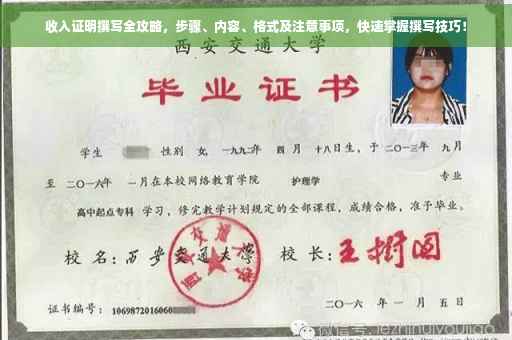 收入证明撰写全攻略，步骤、内容、格式及注意事项，快速掌握撰写技巧！
西安交通大学
毕业证书
学生 性别 女，一九九二年 四月 十八日生，于二〇一三年 九月
至 二〇一六年 一月在本校网络教育学院 护理学 专业
高中起点专科 学习，修完教学计划规定的全部课程，成绩合格，准予毕业。
校 名：西安交通大学 校 长：王树国
证书编号：1069872016060
二〇一六 年 一 月 五 日
微信号: jezhihuiyoujiao